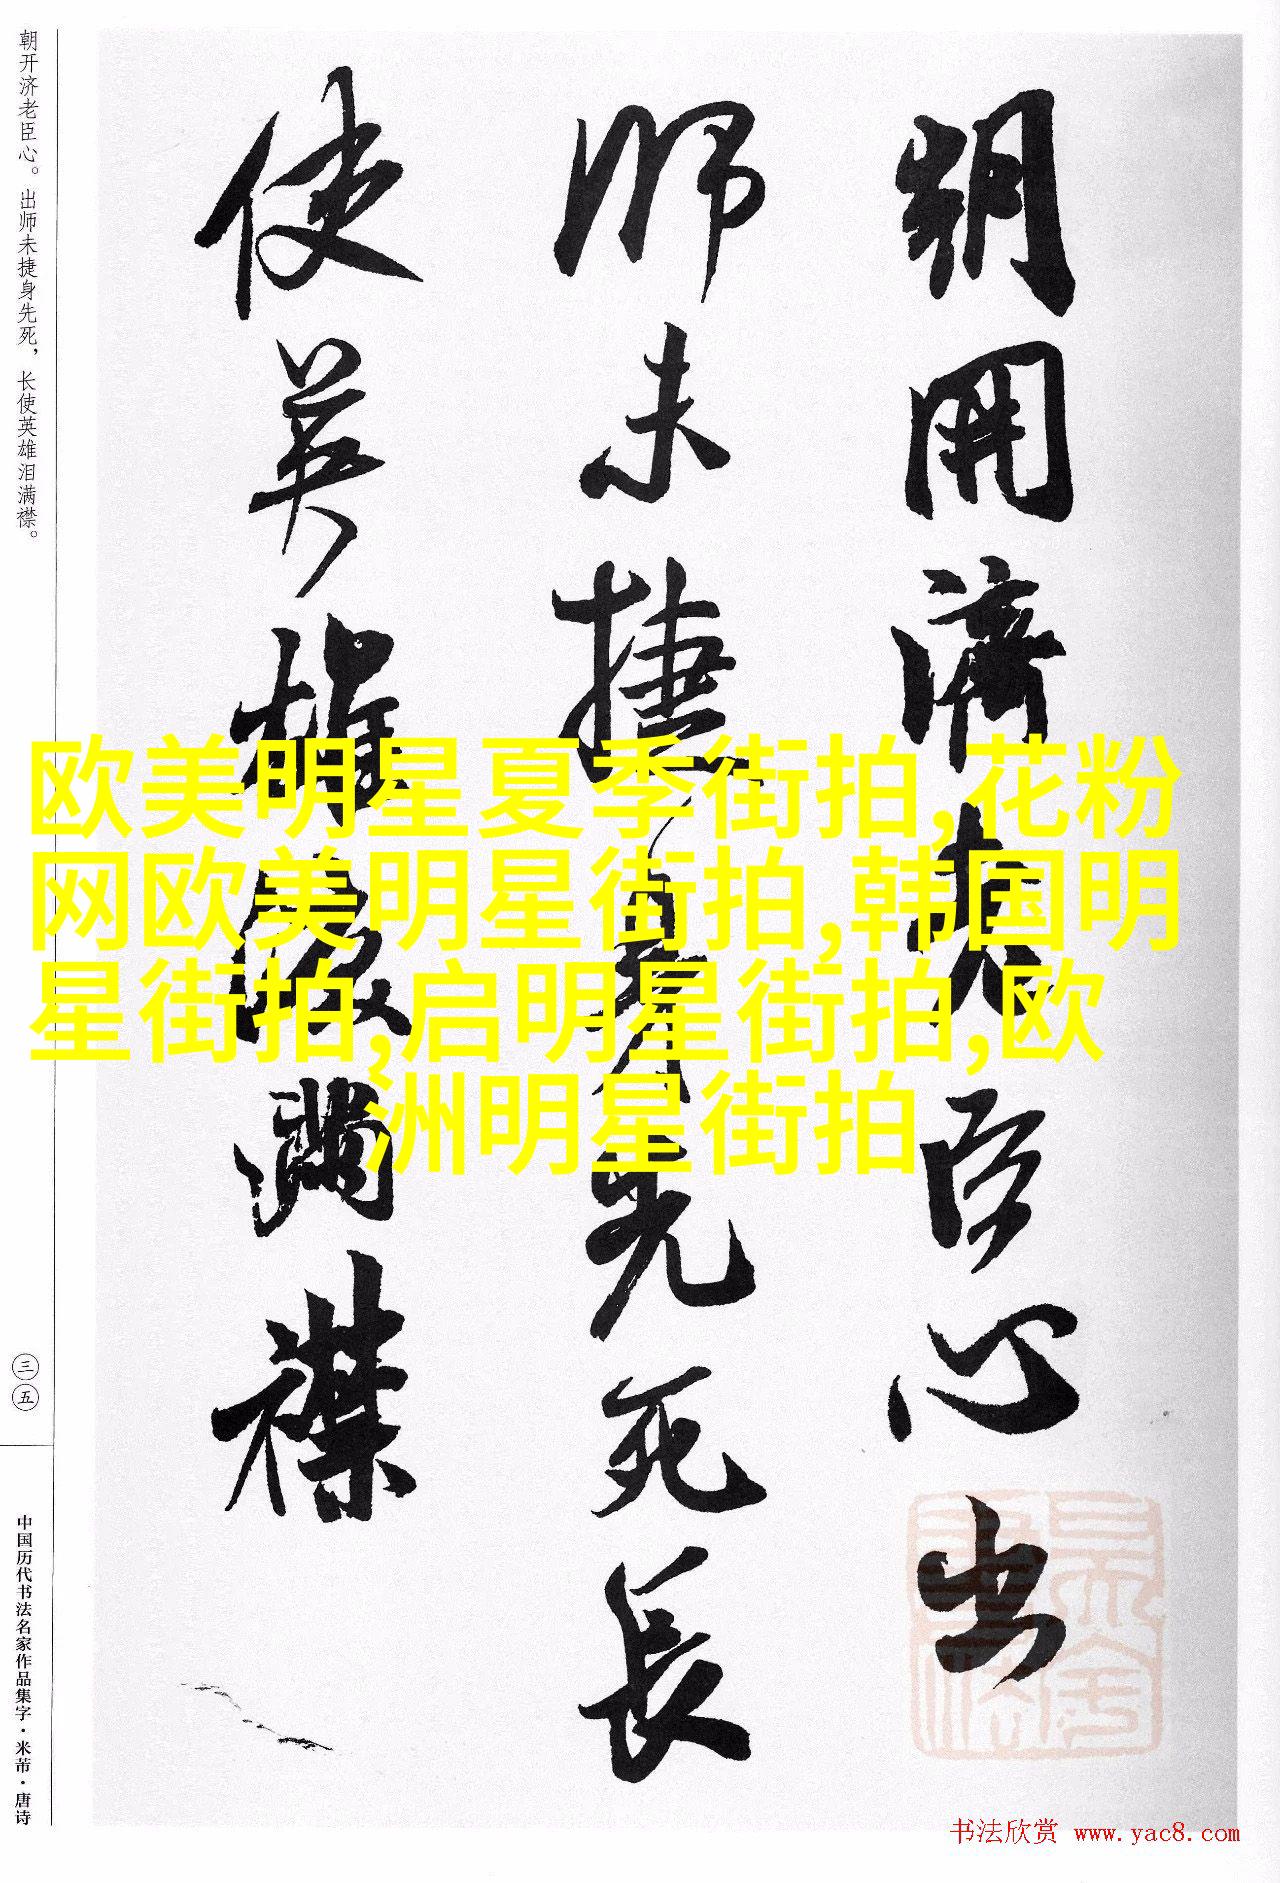 朝開濟老臣心出
師未捷身先死長
使英雄淚滿襟
朝开济老臣心。出师未捷身先死，长使英雄泪满襟。
三五
中国历代书法名家作品集字·米芾·唐诗
欧美明星夏季街拍,花粉
网欧美明星街拍,韩国明
星街拍,启明星街拍,欧
洲明星街拍
书法欣赏 www.yac8.com